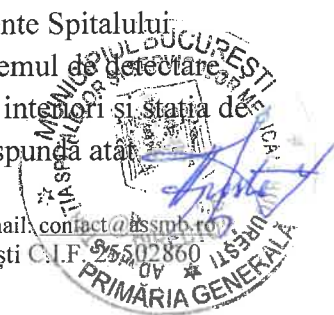 nte Spitalului
emul de detectare
interiori și stația de
spundă atât
mail: contact@assmb.ro
ști C.I.F. 25502860
MUNICIPIUL BUCUREȘTI
PRIMĂRIA GENERALĂ